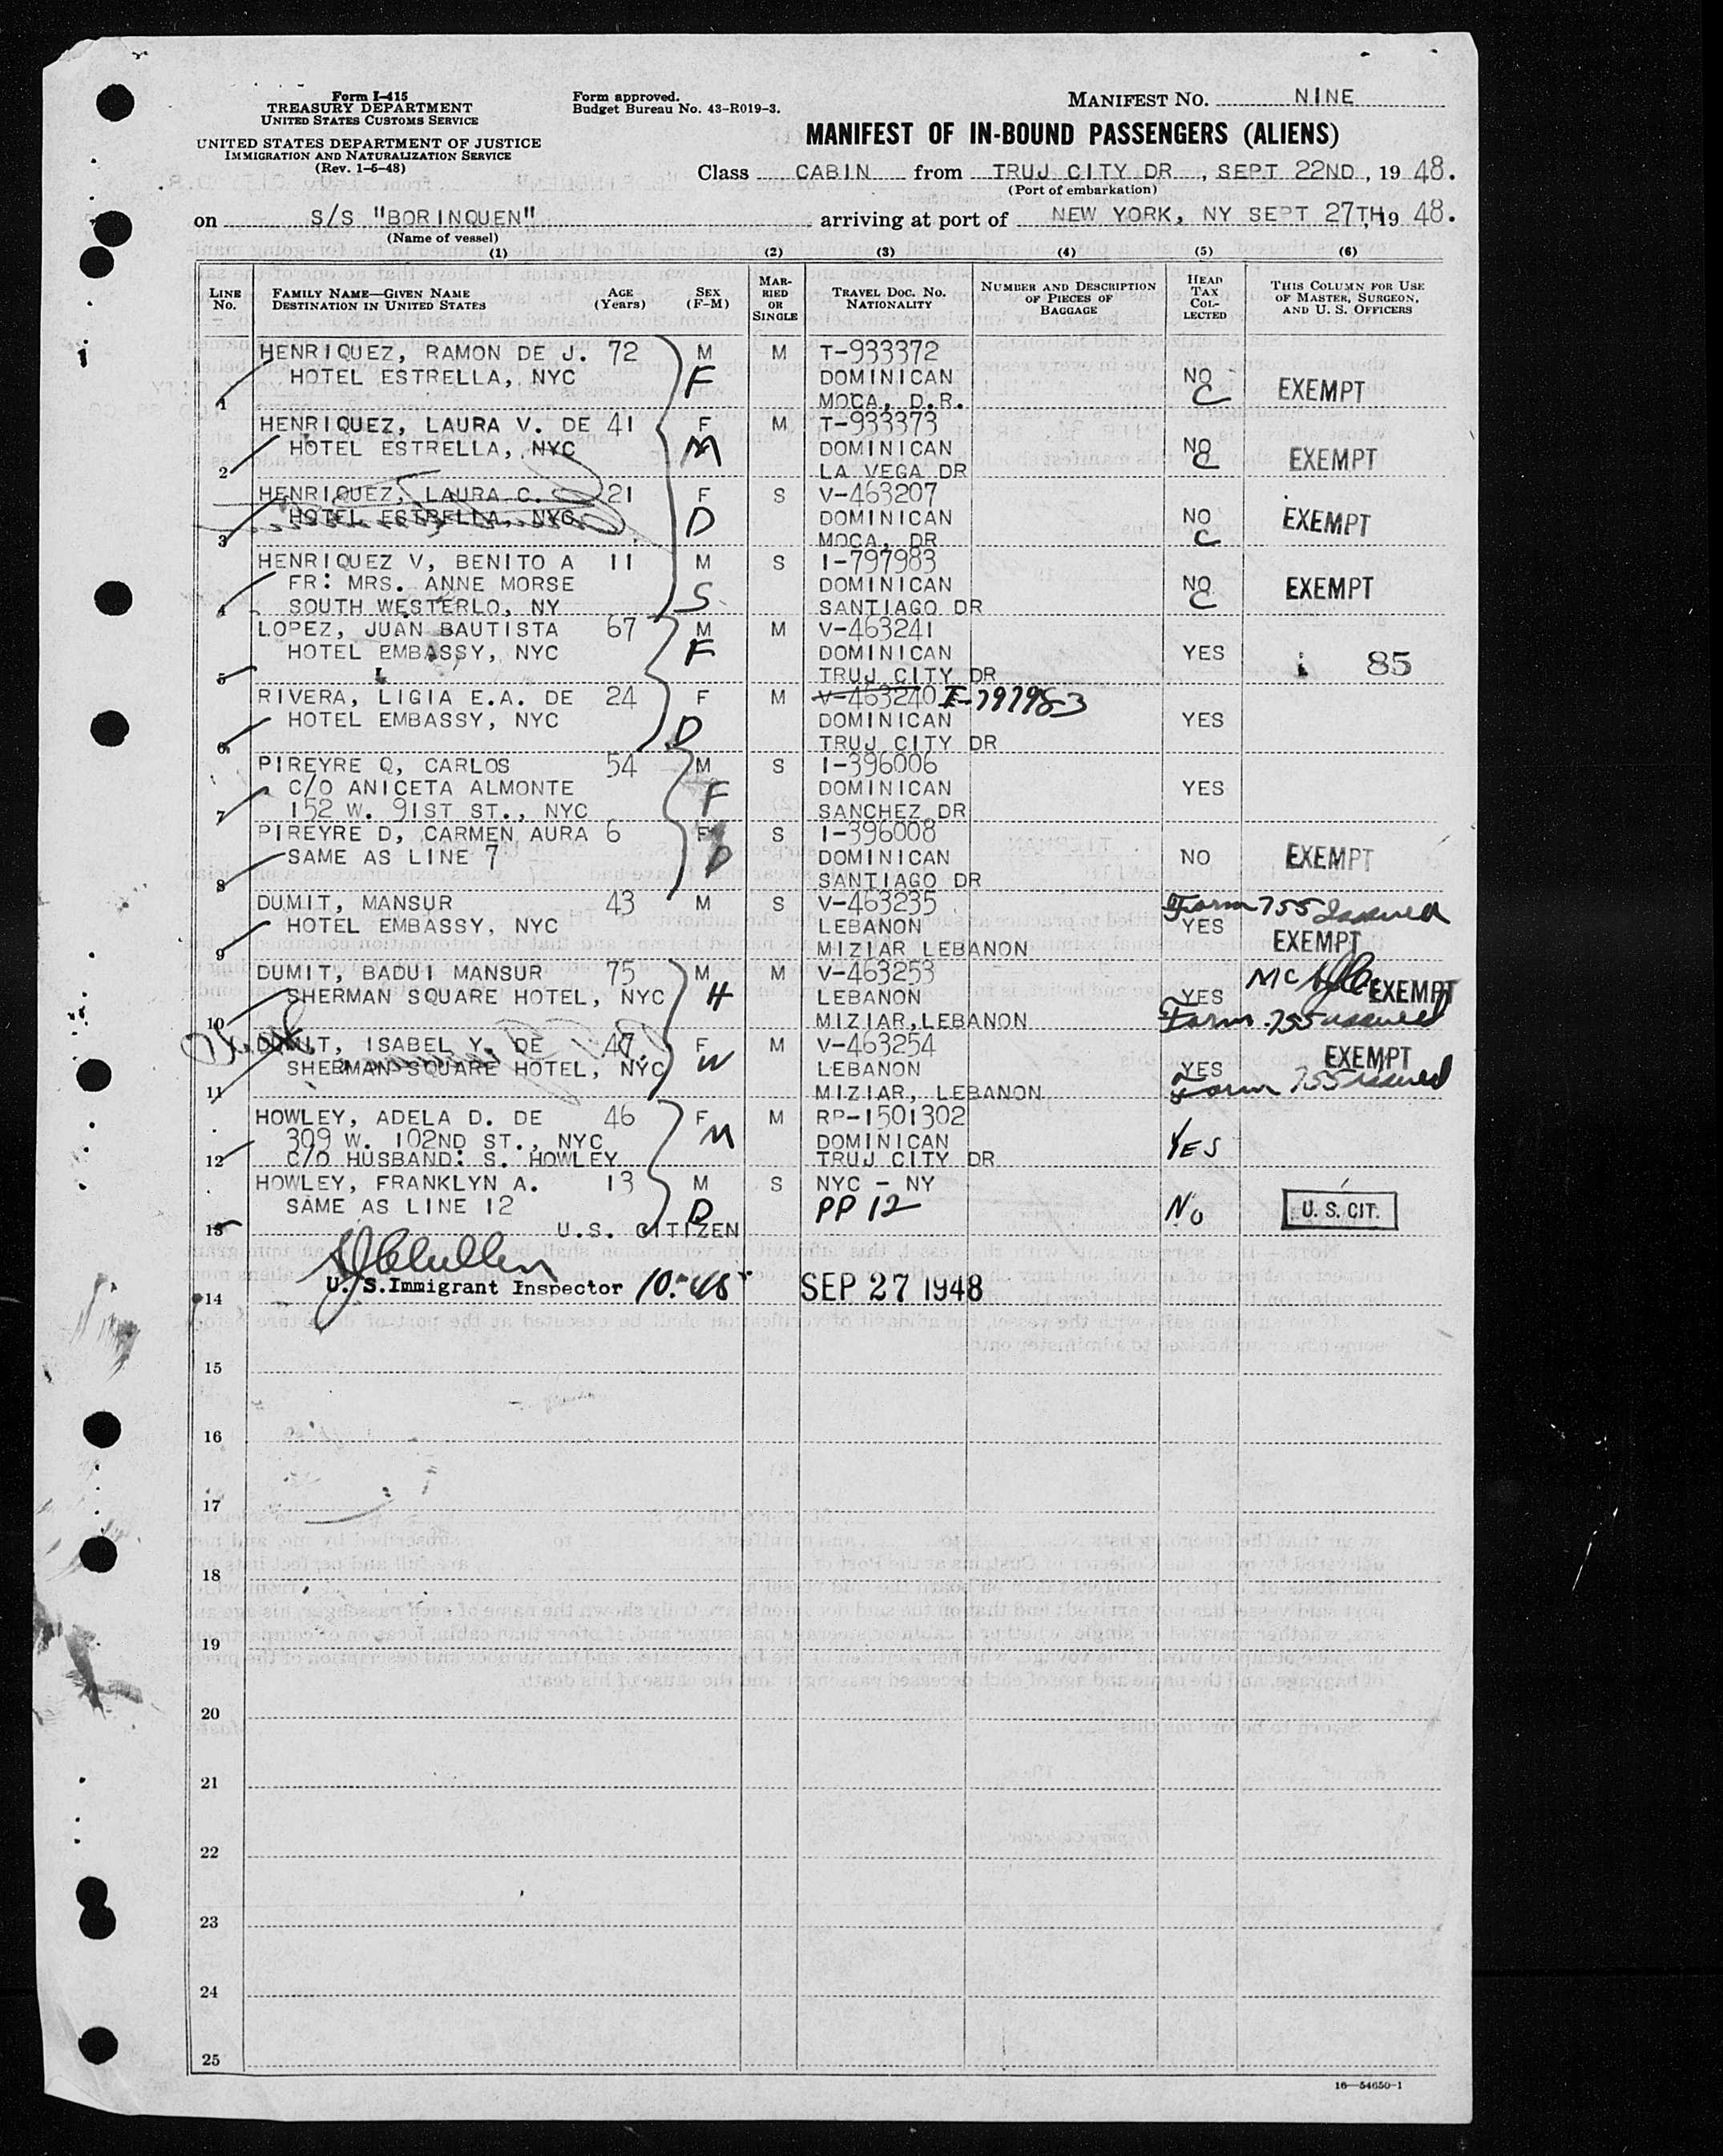 Form I-415
TREASURY DEPARTMENT
UNITED STATES CUSTOMS SERVICE
UNITED STATES DEPARTMENT OF JUSTICE
IMMIGRATION AND NATURALIZATION SERVICE
(Rev. 1-6-48)
Form approved.
Budget Bureau No. 43-R019-3.
MANIFEST NO. NINE
MANIFEST OF IN-BOUND PASSENGERS (ALIENS)
Class CABIN from TRUJ CITY DR, SEPT 22ND, 19 48.
(Port of embarkation)
on S/S "BORINQUEN" arriving at port of NEW YORK, NY SEPT 27TH, 19 48.
(Name of vessel)
(1) (2) (3) (4) (5) (6)
LINE No. FAMILY NAME—GIVEN NAME DESTINATION IN UNITED STATES AGE (Years) SEX (F-M) MARRIED OR SINGLE TRAVEL DOC. NO. NATIONALITY NUMBER AND DESCRIPTION OF PIECES OF BAGGAGE HEAD TAX COLLECTED THIS COLUMN FOR USE OF MASTER, SURGEON, AND U. S. OFFICERS
HENRIQUEZ, RAMON DE J. 72 M M T-933372
HOTEL ESTRELLA, NYC F DOMINICAN NO C EXEMPT
1 MOCA, D.R.
HENRIQUEZ, LAURA V. DE 41 F M T-933373
HOTEL ESTRELLA, NYC M DOMINICAN NO C EXEMPT
2 LA VEGA DR
HENRIQUEZ, LAURA C. 21 F S V-463207
HOTEL ESTRELLA, NYC D DOMINICAN NO C EXEMPT
3 MOCA, DR
HENRIQUEZ V, BENITO A 11 M S I-797983
FR: MRS. ANNE MORSE S DOMINICAN NO C EXEMPT
4 SOUTH WESTERLO, NY SANTIAGO DR
LOPEZ, JUAN BAUTISTA 67 M M V-463241
HOTEL EMBASSY, NYC F DOMINICAN YES 85
5 TRUJ CITY DR
RIVERA, LIGIA E.A. DE 24 F M V-463240 I-797983
HOTEL EMBASSY, NYC D DOMINICAN YES
6 TRUJ CITY DR
PIREYRE Q, CARLOS 54 M S I-396006
C/O ANICETA ALMONTE F DOMINICAN YES
7 152 W. 91ST ST., NYC SANCHEZ DR
PIREYRE D, CARMEN AURA 6 F S I-396008
SAME AS LINE 7 D DOMINICAN NO EXEMPT
8 SANTIAGO DR
DUMIT, MANSUR 43 M S V-463235 Form 755 Issued
HOTEL EMBASSY, NYC LEBANON YES EXEMPT
9 MIZIAR LEBANON
DUMIT, BADUI MANSUR 75 M M V-463253
SHERMAN SQUARE HOTEL, NYC H LEBANON YES EXEMPT
10 MIZIAR, LEBANON Form 755 issued
DUMIT, ISABEL Y. DE 47 F M V-463254 EXEMPT
SHERMAN SQUARE HOTEL, NYC W LEBANON YES
11 MIZIAR, LEBANON Form 755 issued
HOWLEY, ADELA D. DE 46 F M RP-1501302
309 W. 102ND ST., NYC M DOMINICAN YES
12 C/O HUSBAND: S. HOWLEY TRUJ CITY DR
HOWLEY, FRANKLYN A. 13 M S NYC - NY
SAME AS LINE 12 D PP 12 No U. S. CIT.
13 U.S. CITIZEN
U. S. Immigrant Inspector 10:45 SEP 27 1948
14
15
16
17
18
19
20
21
22
23
24
25
16—54650-1